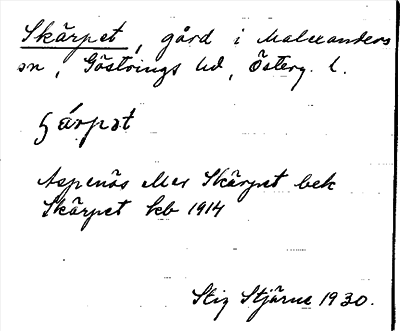 Skärpet, gård i Malexanders
sn, Göstrings hd, Österg. l.
ʃärpət
Aspenäs eller Skärpet bek
Skärpet kb 1914
Stig Stjärne 1930.